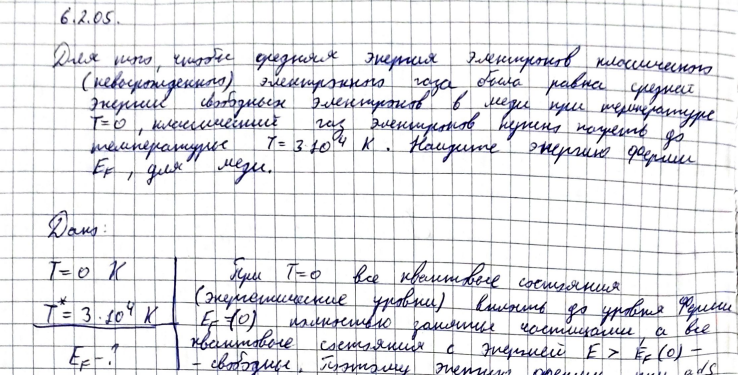 6.2.05.
Для того, чтобы средняя энергия электронов классического
(невырожденного) электронного газа была равна средней
энергии свободных электронов в меди при температуре
T=0, классический газ электронов нужно нагреть до
температуры T = 3·10⁴ K. Найдите энергию Ферми
E_F, для меди.
Дано:
T = 0 K
T* = 3·10⁴ K
E_F - ?
При T=0 все квантовые состояния
(энергетические уровни) вплоть до уровня Ферми
E_F(0) полностью заняты частицами, а все
квантовые состояния с энергией E > E_F(0) -
- свободны. Поэтому энергия